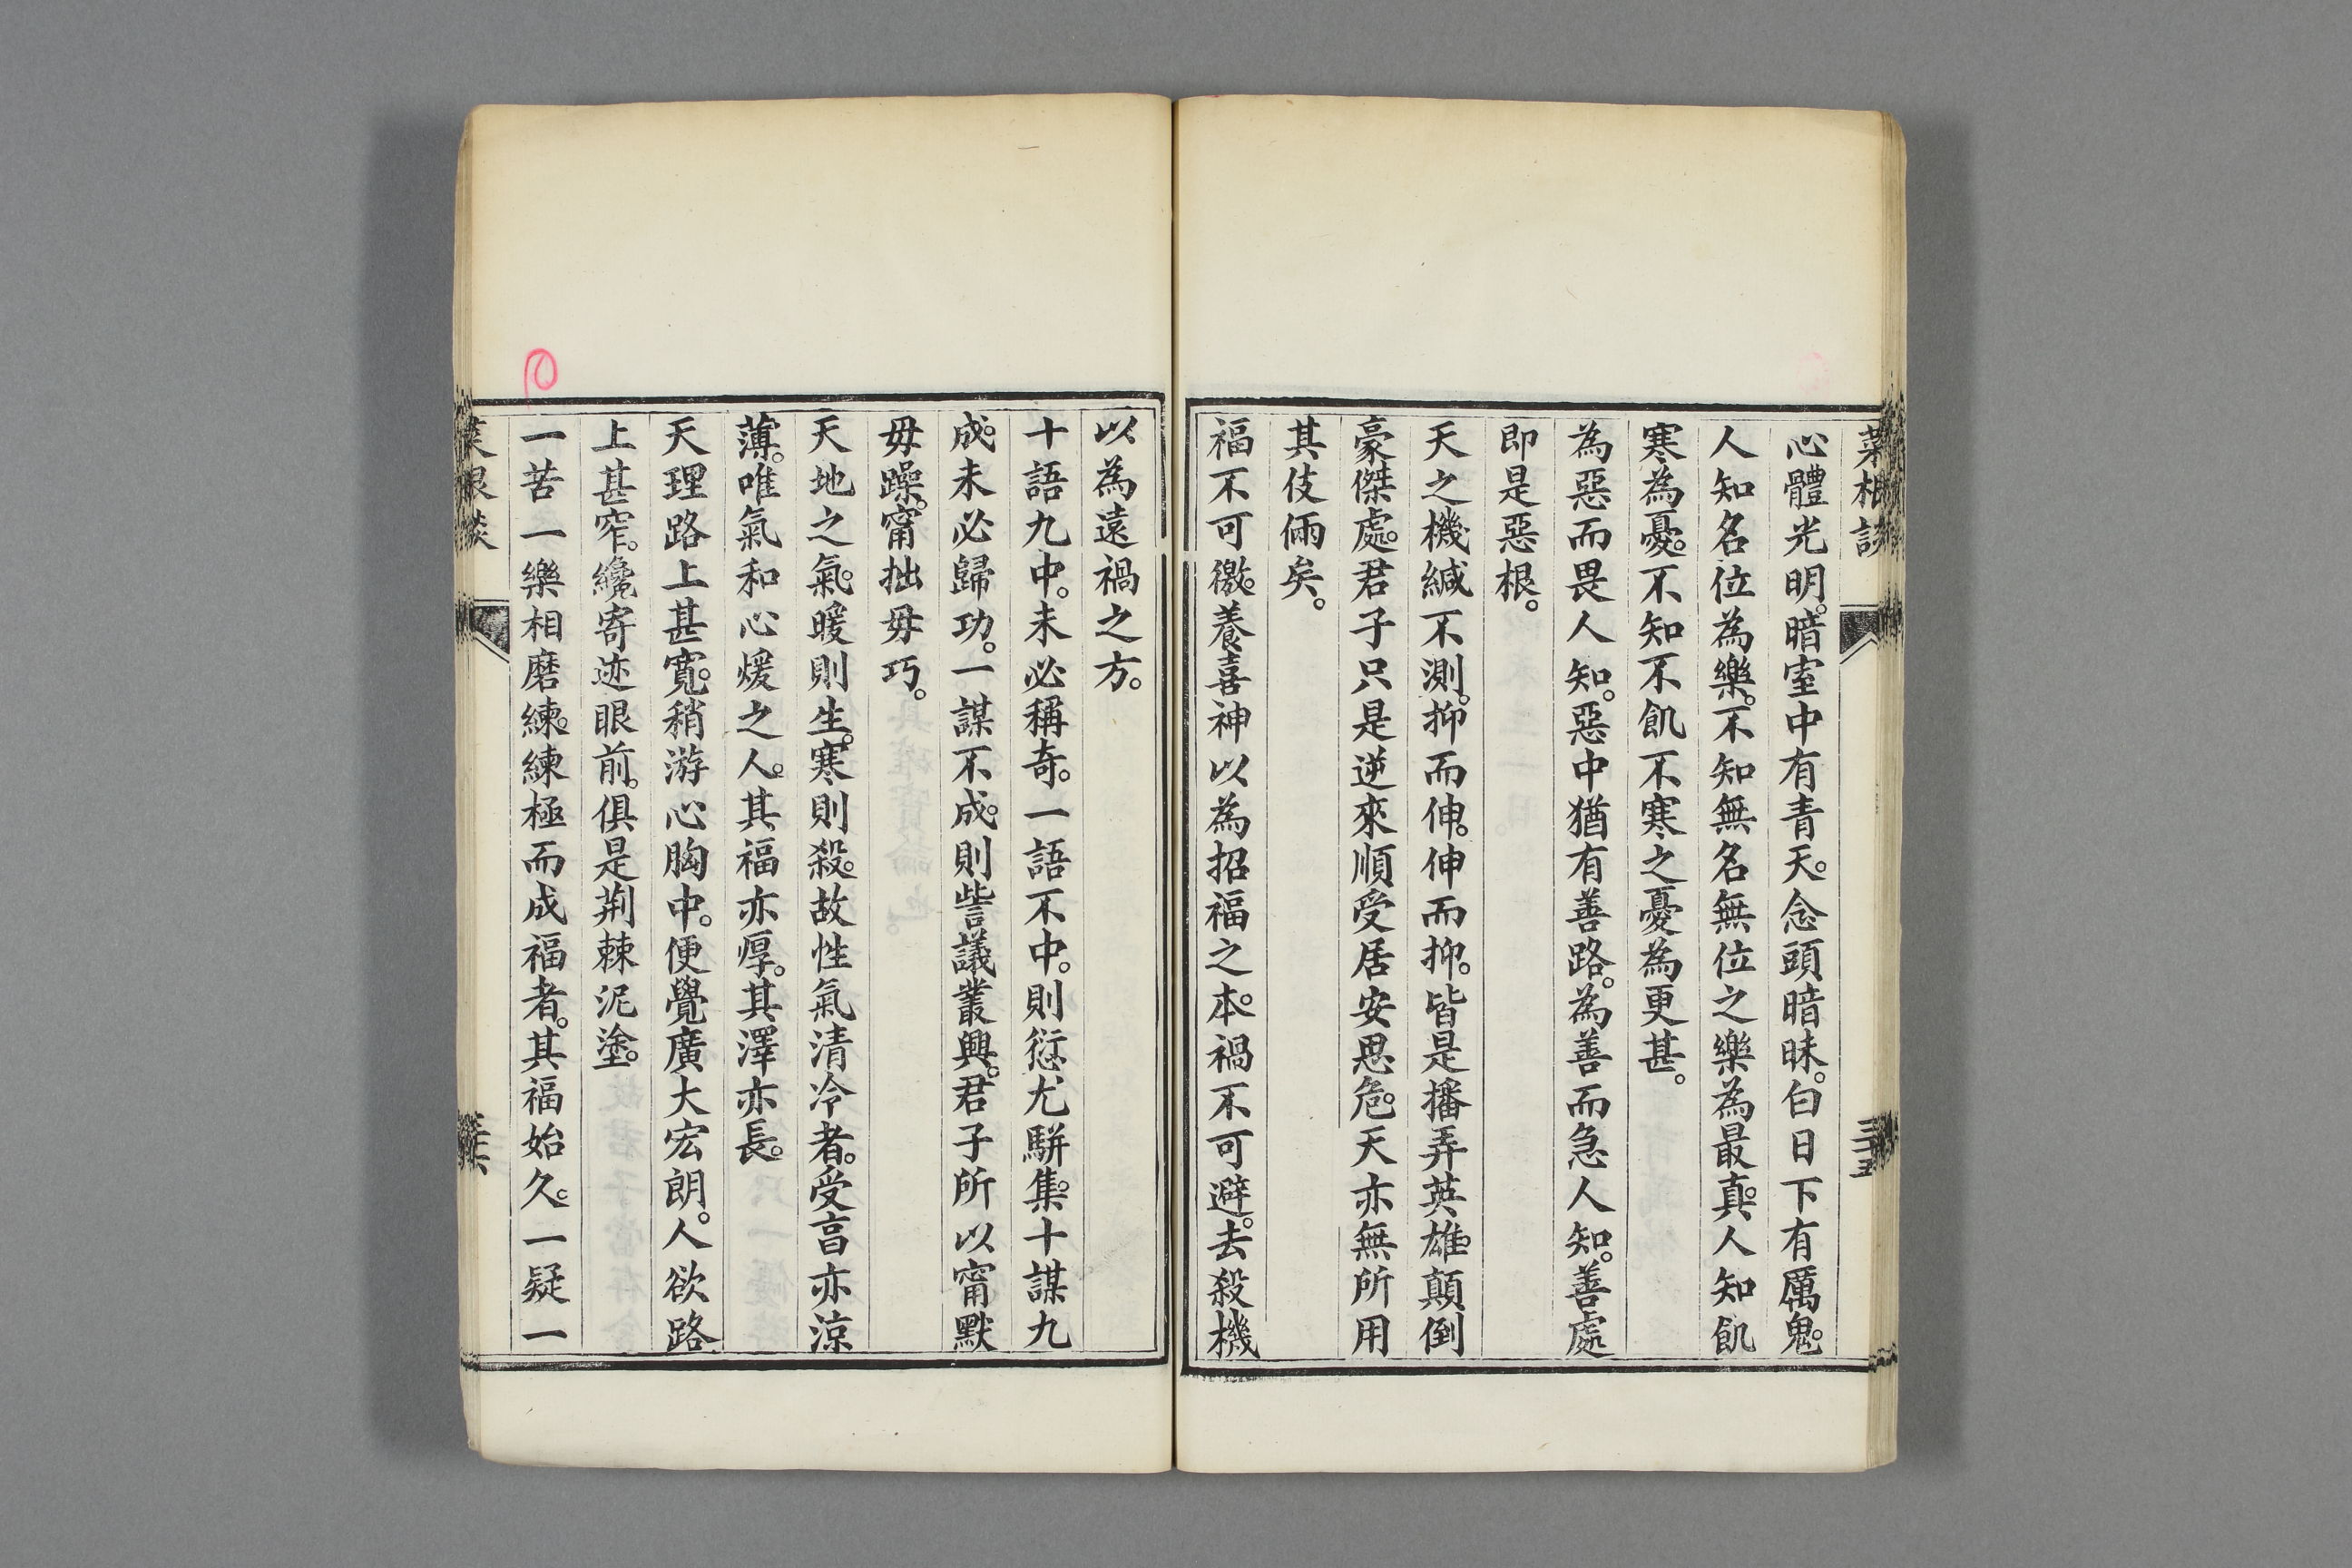 菜根談
三十五
心體光明。暗室中有青天。念頭暗昧。白日下有厲鬼。
人知名位為樂。不知無名無位之樂為最真。人知飢
寒為憂。不知不飢不寒之憂為更甚。
為惡而畏人知。惡中猶有善路。為善而急人知。善處
即是惡根。
天之機緘不測。抑而伸。伸而抑。皆是播弄英雄顛倒
豪傑處。君子只是逆來順受居安思危。天亦無所用
其伎倆矣。
福不可徼。養喜神以為招福之本。禍不可避。去殺機
以為遠禍之方。
十語九中。未必稱奇。一語不中。則愆尤駢集。十謀九
成。未必歸功。一謀不成。則訾議叢興。君子所以甯默
毋躁。甯拙毋巧。
天地之氣。暖則生。寒則殺。故性氣清冷者。受亯亦涼
薄。唯氣和心煖之人。其福亦厚。其澤亦長。
天理路上甚寬。稍游心胸中。便覺廣大宏朗。人欲路
上甚窄。纔寄迹眼前。俱是荆棘泥塗。
一苦一樂相磨練。練極而成福者。其福始久。一疑一
菜根談